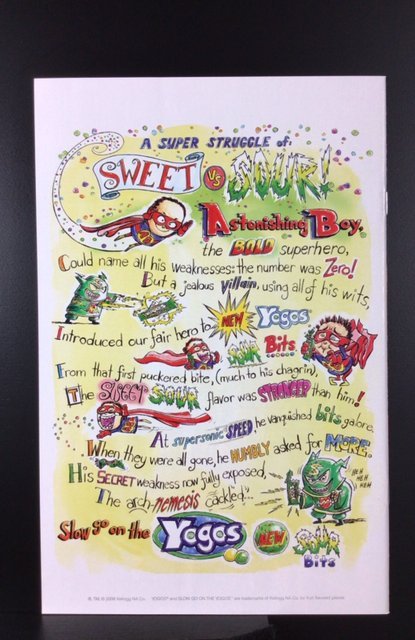 A SUPER STRUGGLE of:
SWEET vs SOUR!
Astonishing Boy,
the BOLD superhero,
Could name all his weaknesses: the number was Zero!
But a jealous villain, using all of his wits,
Introduced our fair hero to NEW Yogos
SOUR Bits.
From that first puckered bite, (much to his chagrin),
The SWEET SOUR flavor was STRONGER than him!
At supersonic SPEED he vanquished bits galore.
When they were all gone, he HUMBLY asked for MORE.
His SECRET weakness now fully exposed,
The arch-nemesis cackled...
HEH
HEH
HEH
Slow go on the Yogos NEW SOUR
Bits